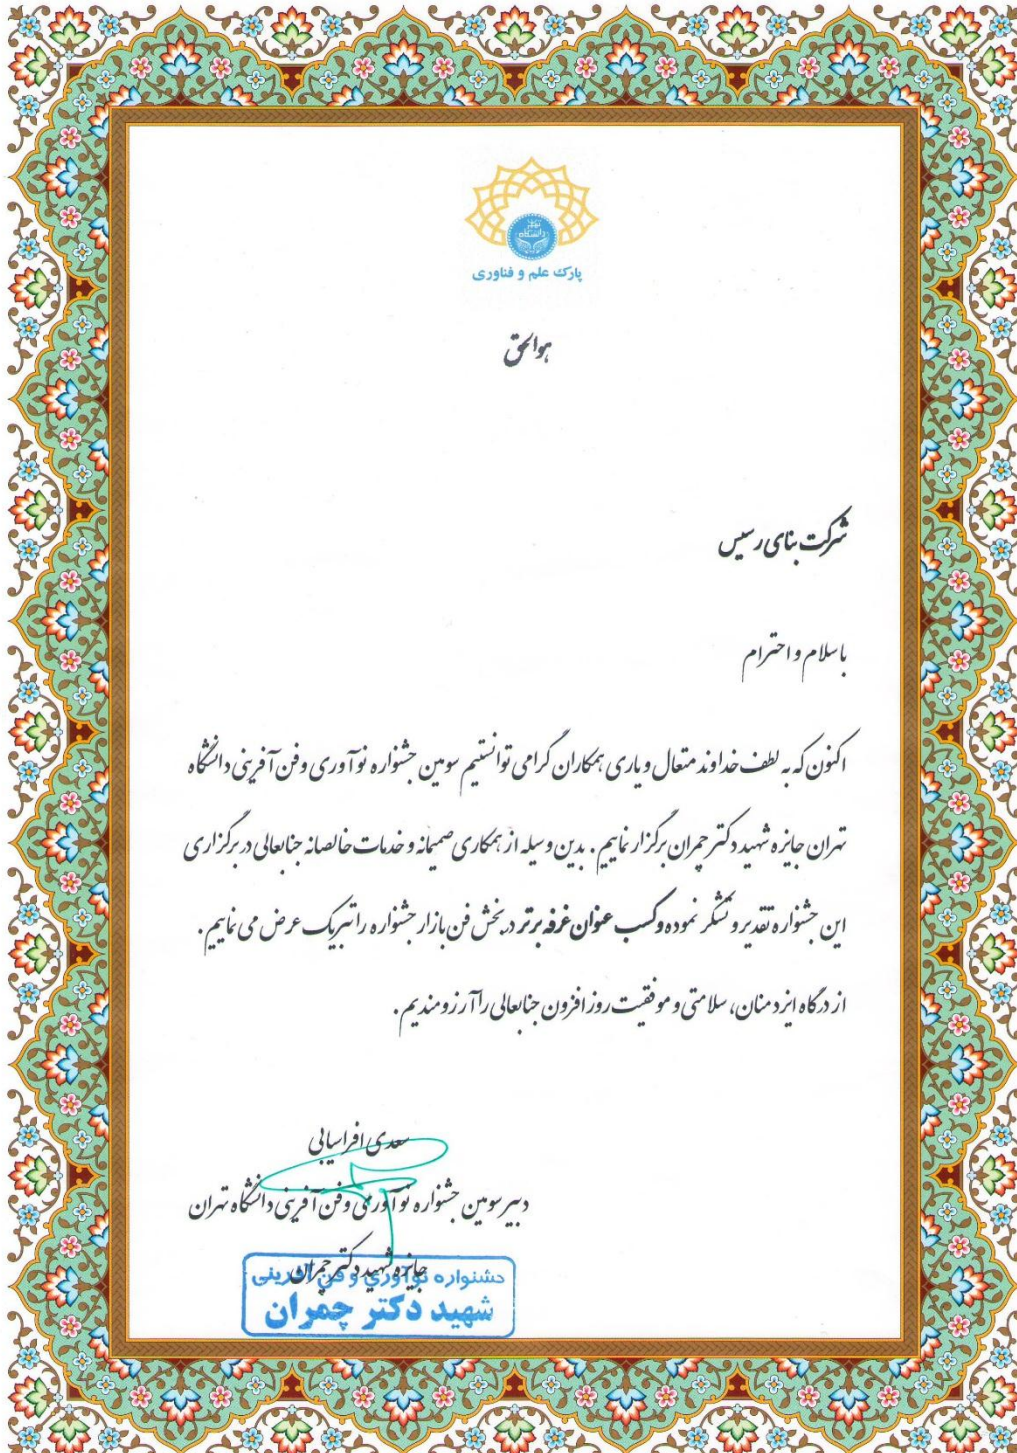 دانشگاه تهران
پارک علم و فناوری
هوالحق
شرکت بنای رسیس
با سلام و احترام
اکنون که به لطف خداوند متعال و یاری همکاران گرامی توانستیم سومین جشنواره نوآوری و فن آفرینی دانشگاه
تهران جایزه شهید دکتر چمران برگزار نماییم. بدین وسیله از همکاری صمیمانه و خدمات خالصانه جنابعالی در برگزاری
این جشنواره تقدیر و تشکر نموده و کسب عنوان غرفه برتر در بخش فن بازار جشنواره را تبریک عرض می نماییم.
از درگاه ایزد منان، سلامتی و موفقیت روز افزون جنابعالی را آرزومندیم.
سعدی افراسیابی
دبیر سومین جشنواره نوآوری و فن آفرینی دانشگاه تهران
جایزه شهید دکتر چمران
جشنواره نوآوری و فن آفرینی
شهید دکتر چمران